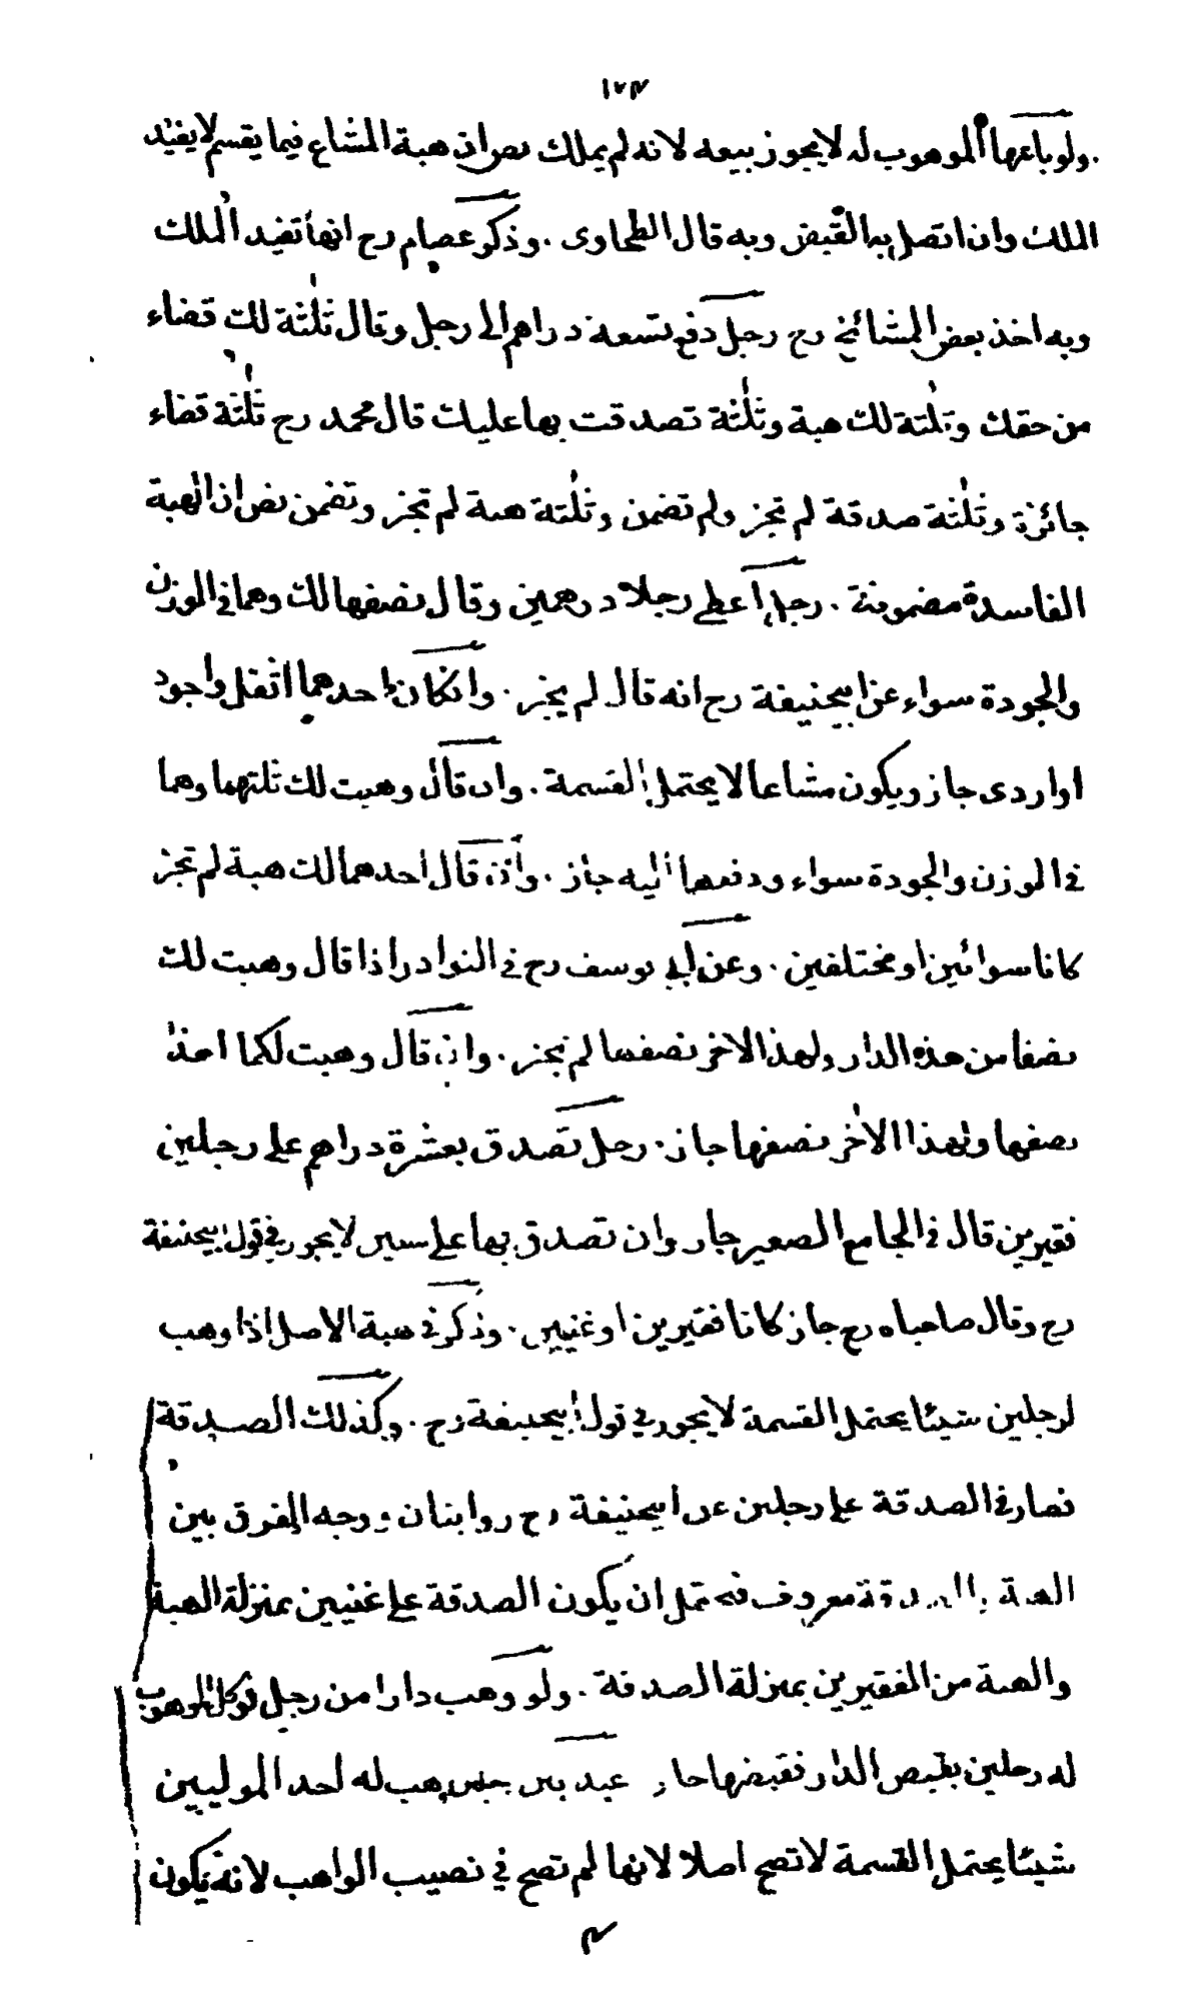 ١٧٣
. ولو باعها الموهوب له لا يجوز بيعه لانه لم يملك نص ان هبة المشاع فيما يقسم لا يفيد
الملك وان اتصل به القبض وبه قال الطحاوى . وذكر عصام رح انها تفيد الملك
وبه اخذ بعض المشائخ رح رجل دفع تسعة دراهم الى رجل وقال ثلثة لك قضاء
من حقك وثلثة لك هبة وثلثة تصدقت بها عليك قال محمد رح ثلثة قضاء
جائزة وثلثة صدقة لم تجز ولم تضمن وثلثة هبة لم تجز وتضمن نص ان الهبة
الفاسدة مضمونة . رجل اعطى رجلا درهمين وقال نصفها لك وهما فى الوزن
والجودة سواء عن ابيحنيفة رح انه قال لم يجز . وانكان احدهما اثقل واجود
او اردى جاز ويكون مشاعا لا يحتمل القسمة . وان قال وهبت لك ثلثهما وهما
فى الوزن والجودة سواء ودفعها اليه جاز . وان قال احدهما لك هبة لم تجز
كانا سوائين او مختلفين . وعن ابى يوسف رح فى النوادر اذا قال وهبت لك
نصفا من هذه الدار ولهذا الاخر نصفها لم يجز . وان قال وهبت لكما لهذا
نصفها ولهذا الاخر نصفها جاز . رجل تصدق بعشرة دراهم على رجلين
فقيرين قال فى الجامع الصغير جاز وان تصدق بها على غنيين لا يجوز فى قول ابيحنيفة
رح وقال صاحباه رح جاز كانا فقيرين او غنيين . وذكر فى هبة الاصل اذا وهب
لرجلين شيئا يحتمل القسمة لا يجوز فى قول ابيحنيفة رح . وكذلك الصدقة
فصار فى الصدقة على رجلين عن ابيحنيفة رح روايتان ووجه الفرق بين
الهبة والصدقة معروف فيحتمل ان يكون الصدقة على غنيين بمنزلة الهبة
والهبة من الفقيرين بمنزلة الصدقة . ولو وهب دارا من رجل فوكل الموهوب
له رجلين بقبض الدار فقبضها جاز عبد بين رجلين وهب له احد الموليين
شيئا يحتمل القسمة لا تصح اصلا لانها لم تصح فى نصيب الواهب لانه يكون